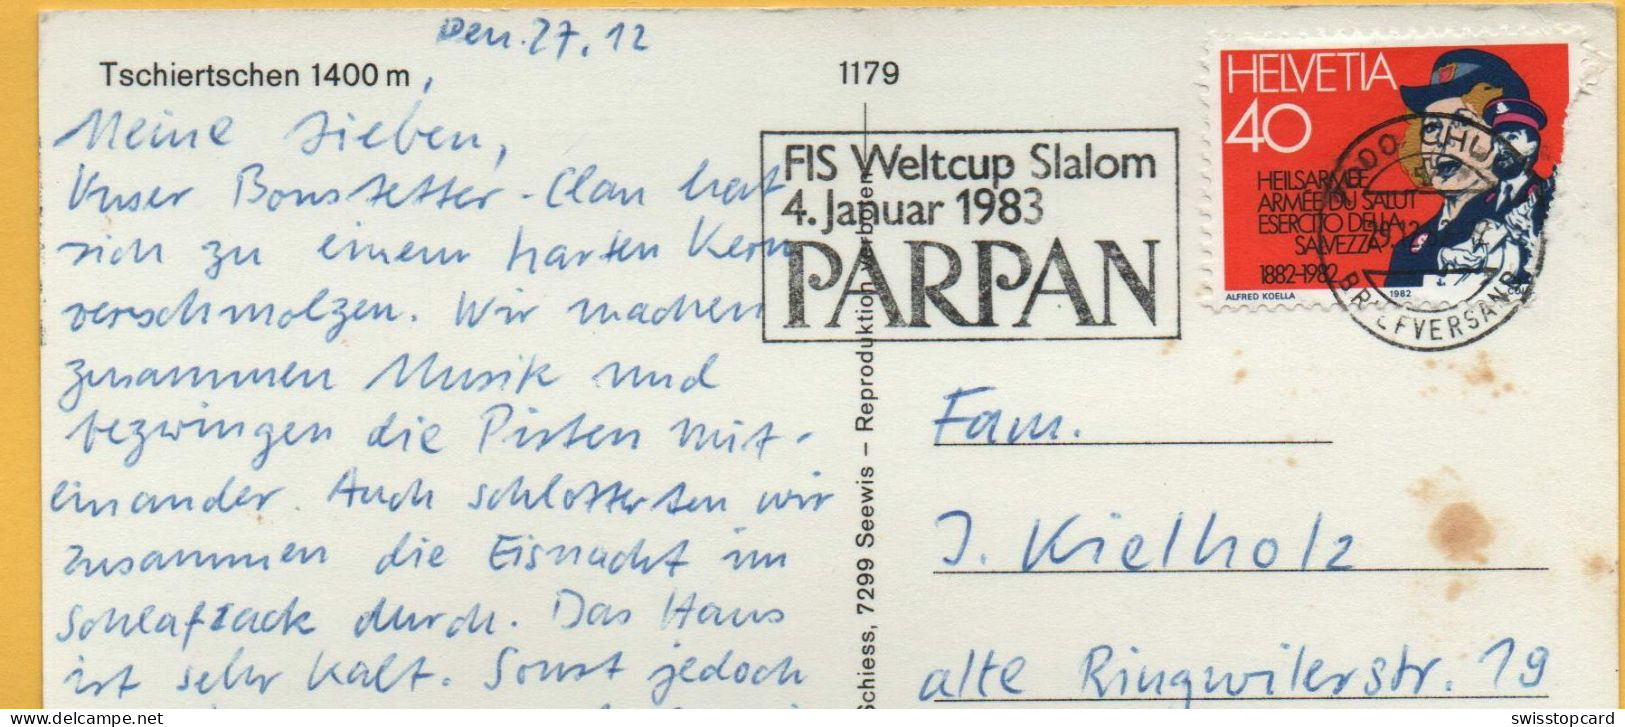 Den 27. 12
Tschiertschen 1400 m
1179
Meine Lieben,
Unser Bonstetter-Clan hat
sich zu einem harten Kern
verschmolzen. Wir machen
zusammen Musik und
bezwingen die Pisten mit-
einander. Auch schlotterten wir
zusammen die Eisnacht im
Schlafsack durch. Das Haus
ist sehr kalt. Sonst jedoch
FIS Weltcup Slalom
4. Januar 1983
PARPAN
Schiess, 7299 Seewis – Reproduktion verboten
HELVETIA
40
HEILSARMEE
ARMÉE DU SALUT
ESERCITO DELLA
SALVEZZA
1882-1982
ALFRED KOELLA
1982
CHUR
BRIEFVERSAND
Fam.
J. Kielholz
alte Ringwilerstr. 19
swisstopcard